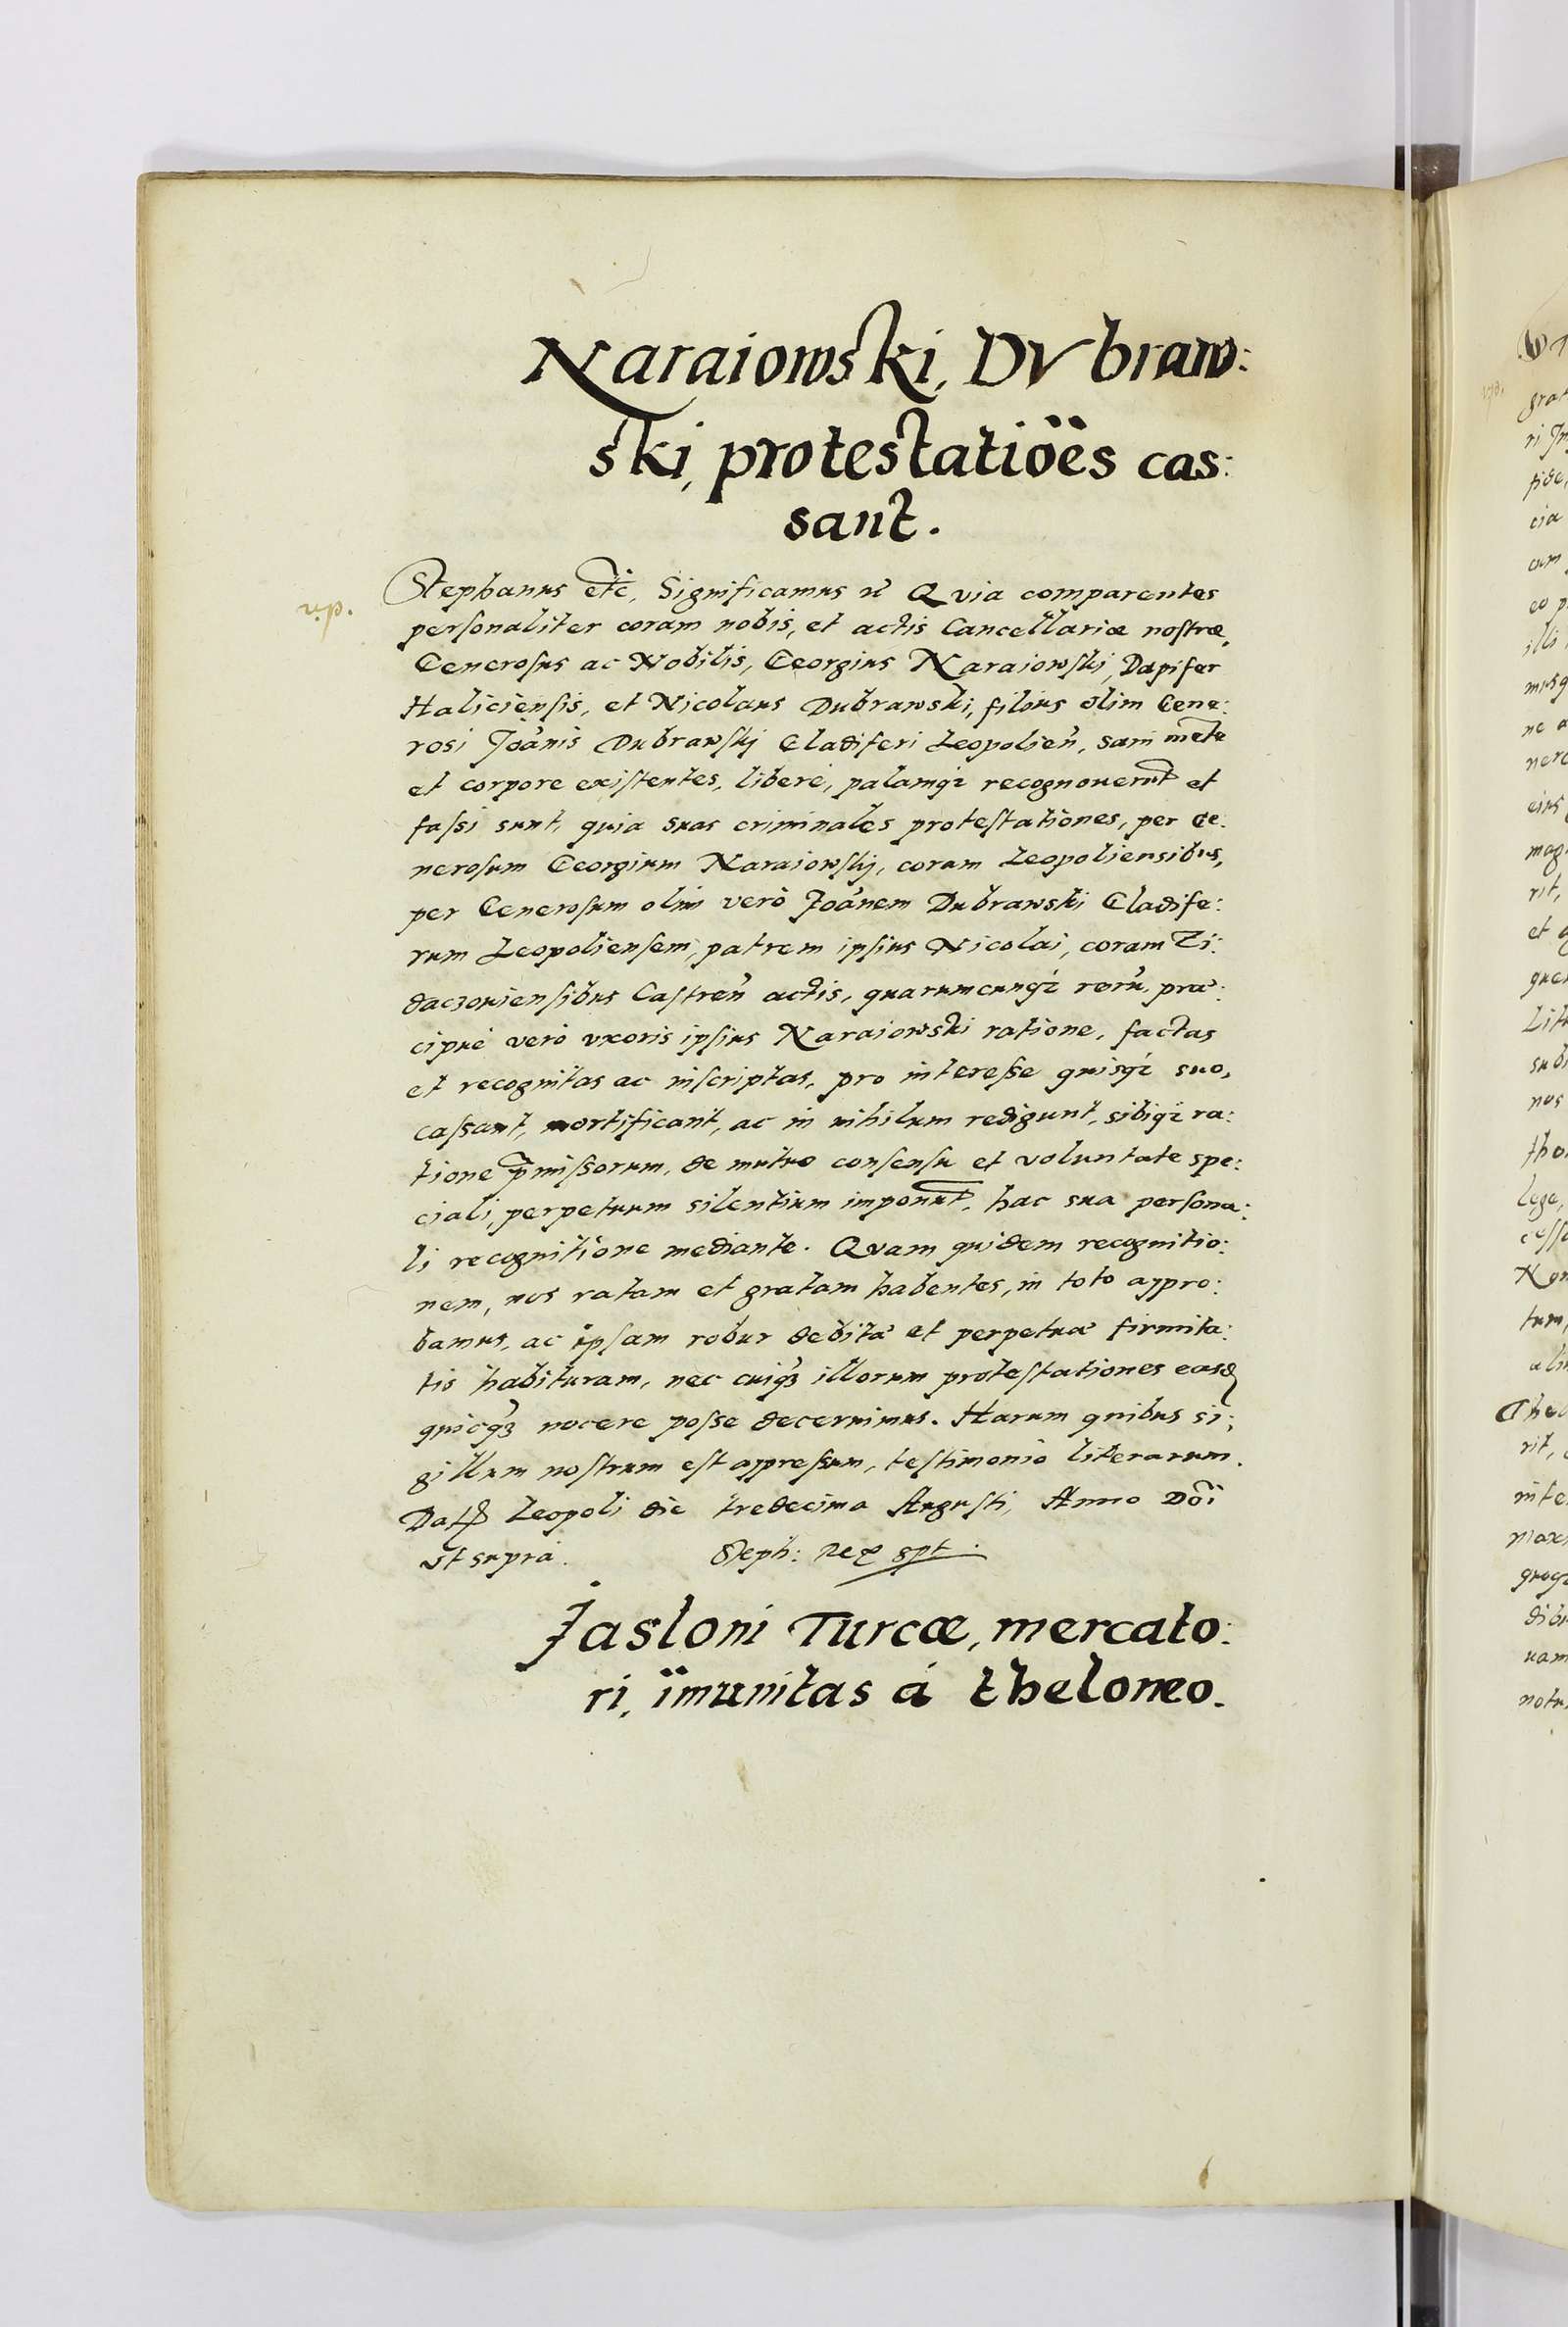 Naraiowski, DVbraw:
ski, protestatiōēs cas:
sant.
Stephanus etc, Significamus etc Quia comparentes
personaliter coram nobis, et actis Cancellariæ nostræ,
Generosus ac Nobilis, Georgius Naraiowski, Dapifer
Haliciensis, et Nicolaus Dubrawski, filius olim Gene:
rosi Joānis Dubrawskj Gladiferi Leopolień, sani mēte
et corpore existentes, liberè, palamq; recognouerūt et
fassi sunt, quia suas criminales protestationes, per Ge:
nerosum Georgium Naraiowskj, coram Leopoliensibus,
per Generosum olim verò Joānem Dubrawski Gladife:
rum Leopoliensem, patrem ipsius Nicolai, coram Zi:
daczouiensibus Castreń actis, quarumcunq; rerū, præ:
cipuè verò vxoris ipsius Naraiowski ratione, factas
et recognitas ac inscriptas, pro interesse quisq; suo,
cassant, mortificant, ac in nihilum redigunt, sibiq; ra:
tione p̄missorum, de mutuo consensu et voluntate spe:
ciali, perpetuum silentium imponūt, hac sua persona:
li recognitione mediante. Quam quidem recognitio:
nem, nos ratam et gratam habentes, in toto appro:
bamus, ac ipsam robur debitæ et perpetuæ firmita:
tis habituram, nec cuiq; illorum protestationes easd
quicq; nocere posse decernimus. Harum quibus si:
gillum nostrum est appressum, testimonio literarum.
Dat Leopoli die tredecima Augusti, Anno Dōi
vt suprà. Steph: Rex spt.
Jasloni Turcæ, mercato:
ri, im̄unitas á theloneo.